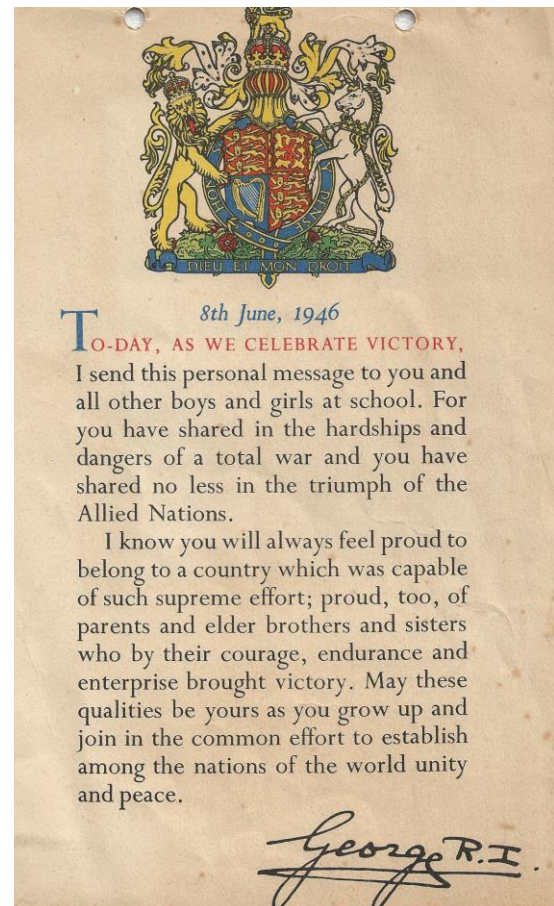 HO Y PENSE
DIEU ET MON DROIT
8th June, 1946
TO-DAY, AS WE CELEBRATE VICTORY,
I send this personal message to you and
all other boys and girls at school. For
you have shared in the hardships and
dangers of a total war and you have
shared no less in the triumph of the
Allied Nations.
I know you will always feel proud to
belong to a country which was capable
of such supreme effort; proud, too, of
parents and elder brothers and sisters
who by their courage, endurance and
enterprise brought victory. May these
qualities be yours as you grow up and
join in the common effort to establish
among the nations of the world unity
and peace.
George R.I.